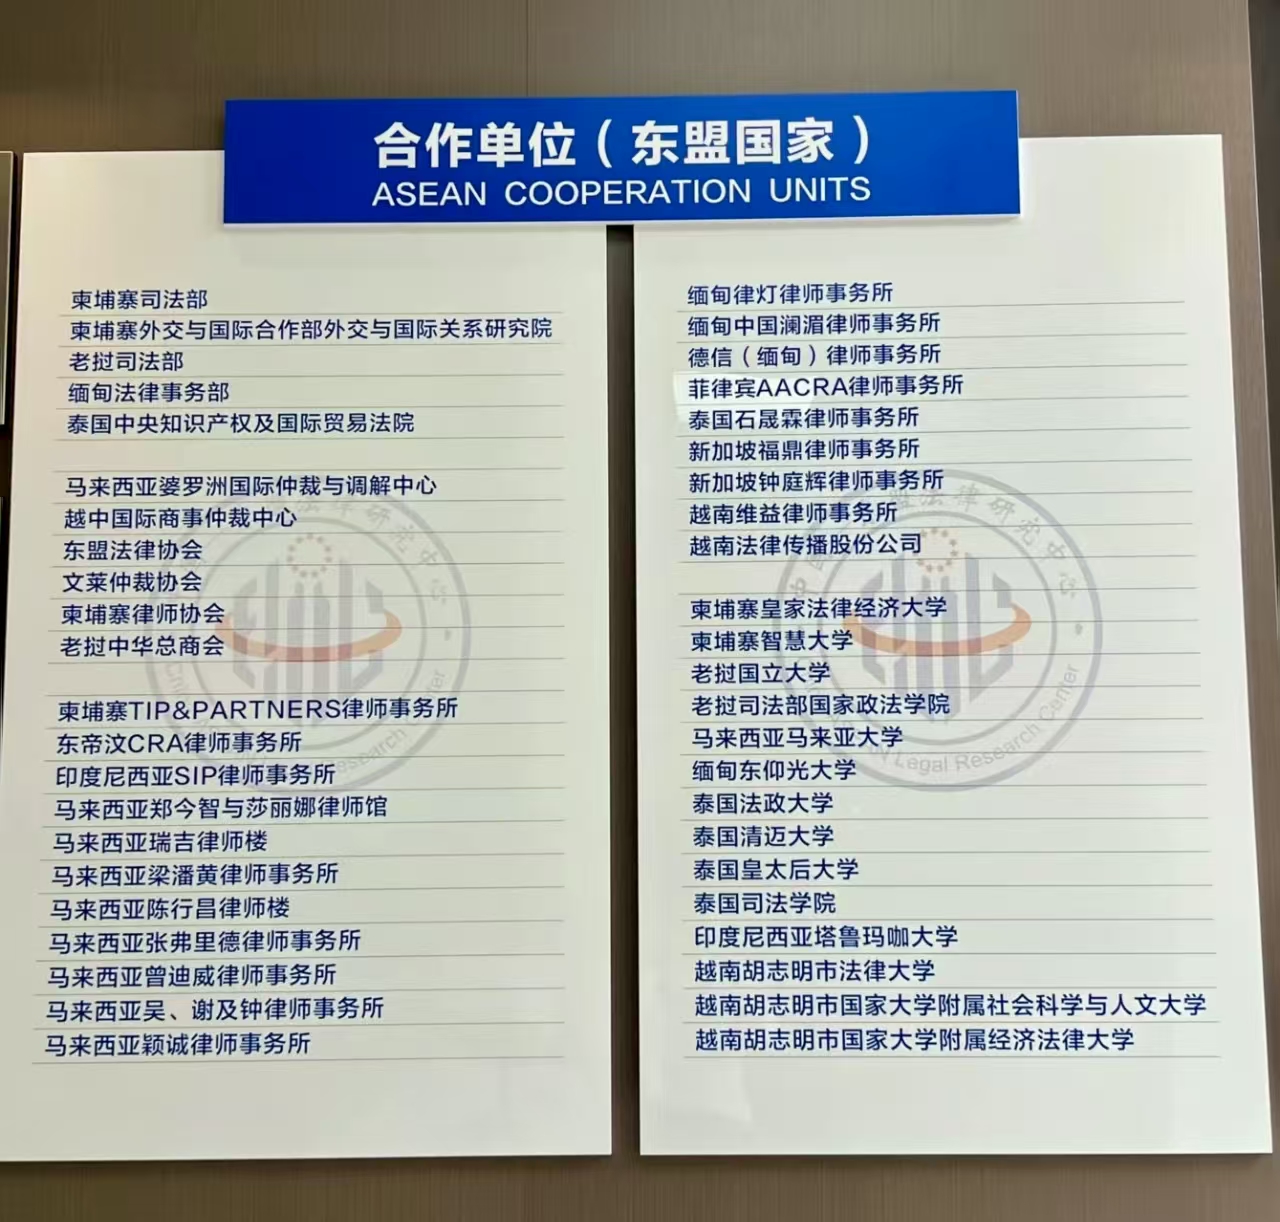 合作单位（东盟国家）
ASEAN COOPERATION UNITS
柬埔寨司法部
柬埔寨外交与国际合作部外交与国际关系研究院
老挝司法部
缅甸法律事务部
泰国中央知识产权及国际贸易法院
马来西亚婆罗洲国际仲裁与调解中心
越中国际商事仲裁中心
东盟法律协会
文莱仲裁协会
柬埔寨律师协会
老挝中华总商会
柬埔寨TIP&PARTNERS律师事务所
东帝汶CRA律师事务所
印度尼西亚SIP律师事务所
马来西亚郑今智与莎丽娜律师馆
马来西亚瑞吉律师楼
马来西亚梁潘黄律师事务所
马来西亚陈行昌律师楼
马来西亚张弗里德律师事务所
马来西亚曾迪威律师事务所
马来西亚吴、谢及钟律师事务所
马来西亚颖诚律师事务所
缅甸律灯律师事务所
缅甸中国澜湄律师事务所
德信（缅甸）律师事务所
菲律宾AACRA律师事务所
泰国石晟霖律师事务所
新加坡福鼎律师事务所
新加坡钟庭辉律师事务所
越南维益律师事务所
越南法律传播股份公司
柬埔寨皇家法律经济大学
柬埔寨智慧大学
老挝国立大学
老挝司法部国家政法学院
马来西亚马来亚大学
缅甸东仰光大学
泰国法政大学
泰国清迈大学
泰国皇太后大学
泰国司法学院
印度尼西亚塔鲁玛咖大学
越南胡志明市法律大学
越南胡志明市国家大学附属社会科学与人文大学
越南胡志明市国家大学附属经济法律大学
法律研究中心
Legal Research Center